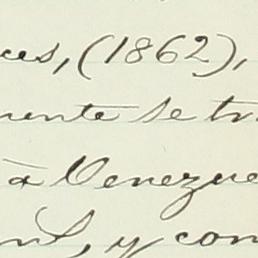 ces, (1862),
mente se tr
à Venezue
y con